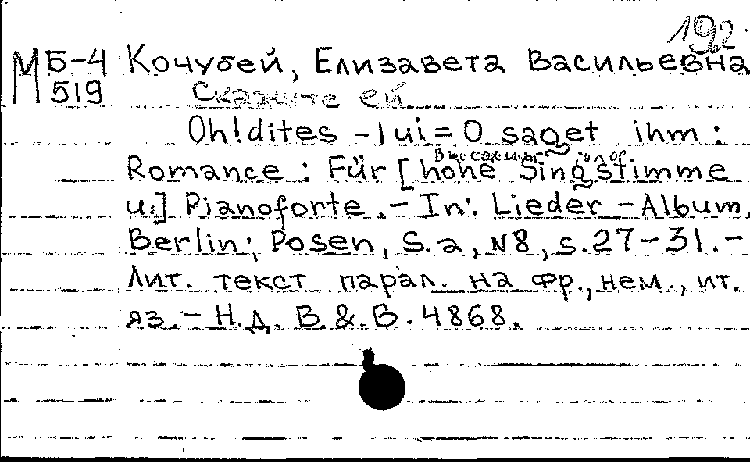 192
МБ-4 Кочубей, Елизавета Васильевна
519 Скажите ей
Oh! dites-lui = O saget ihm :
Romance : Für [hohe Singstimme
Высокий голос
u.] Pianoforte. - In: Lieder-Album,
Berlin; Posen, S. a, N8, s. 27-31. -
Лит. текст парал. на фр., нем., ит.
яз. - Н.д. B. & B. 4868.